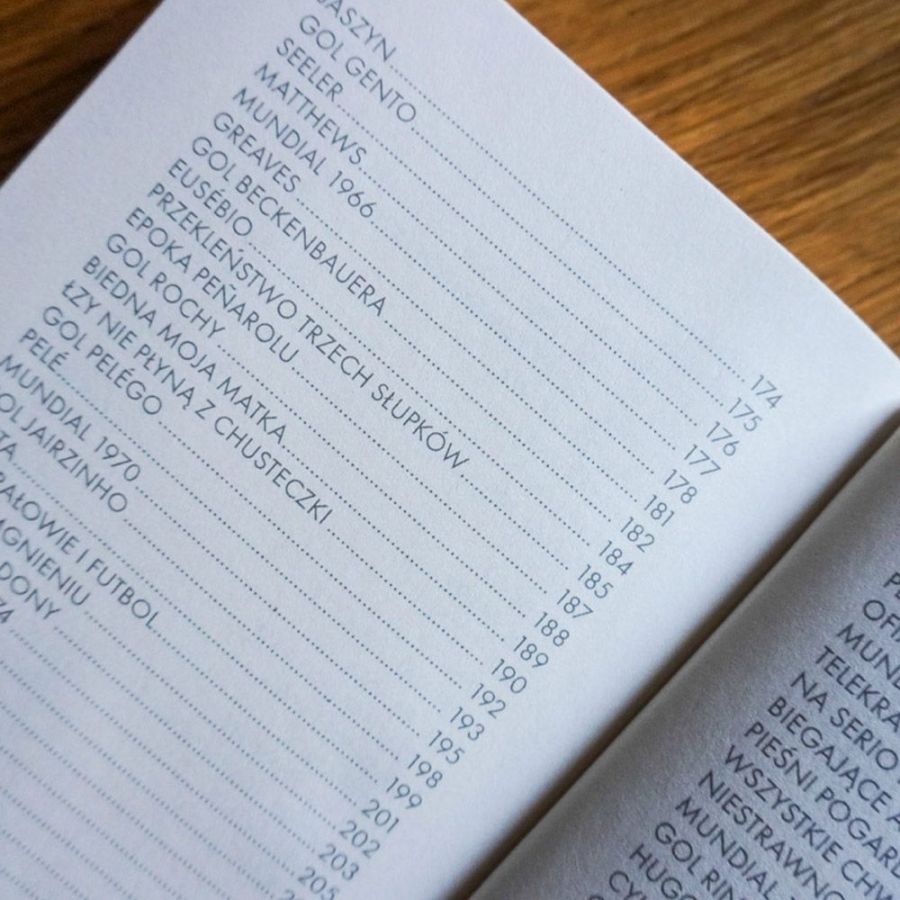 JASZYN 174
GOL GENTO 175
SEELER 176
MATTHEWS 177
MUNDIAL 1966 178
GREAVES 181
GOL BECKENBAUERA 182
EUSÉBIO 184
PRZEKLEŃSTWO TRZECH SŁUPKÓW 185
EPOKA PEÑAROLU 187
GOL ROCHY 188
BIEDNA MOJA MATKA 189
ŁZY NIE PŁYNĄ Z CHUSTECZKI 190
GOL PELÉGO 192
PELÉ 193
MUNDIAL 1970 195
OL JAIRZINHO 198
TA 199
PAŁOWIE I FUTBOL 201
GNIENIU 202
DONY 203
74 205
P
OFI
MUND
TELEKRA
NA SERIO
BIEGAJĄCE A
PIEŚNI POGARD
WSZYSTKIE CHW
NIESTRAWNO
MUNDIAL
GOL RIN
HUGO
CY